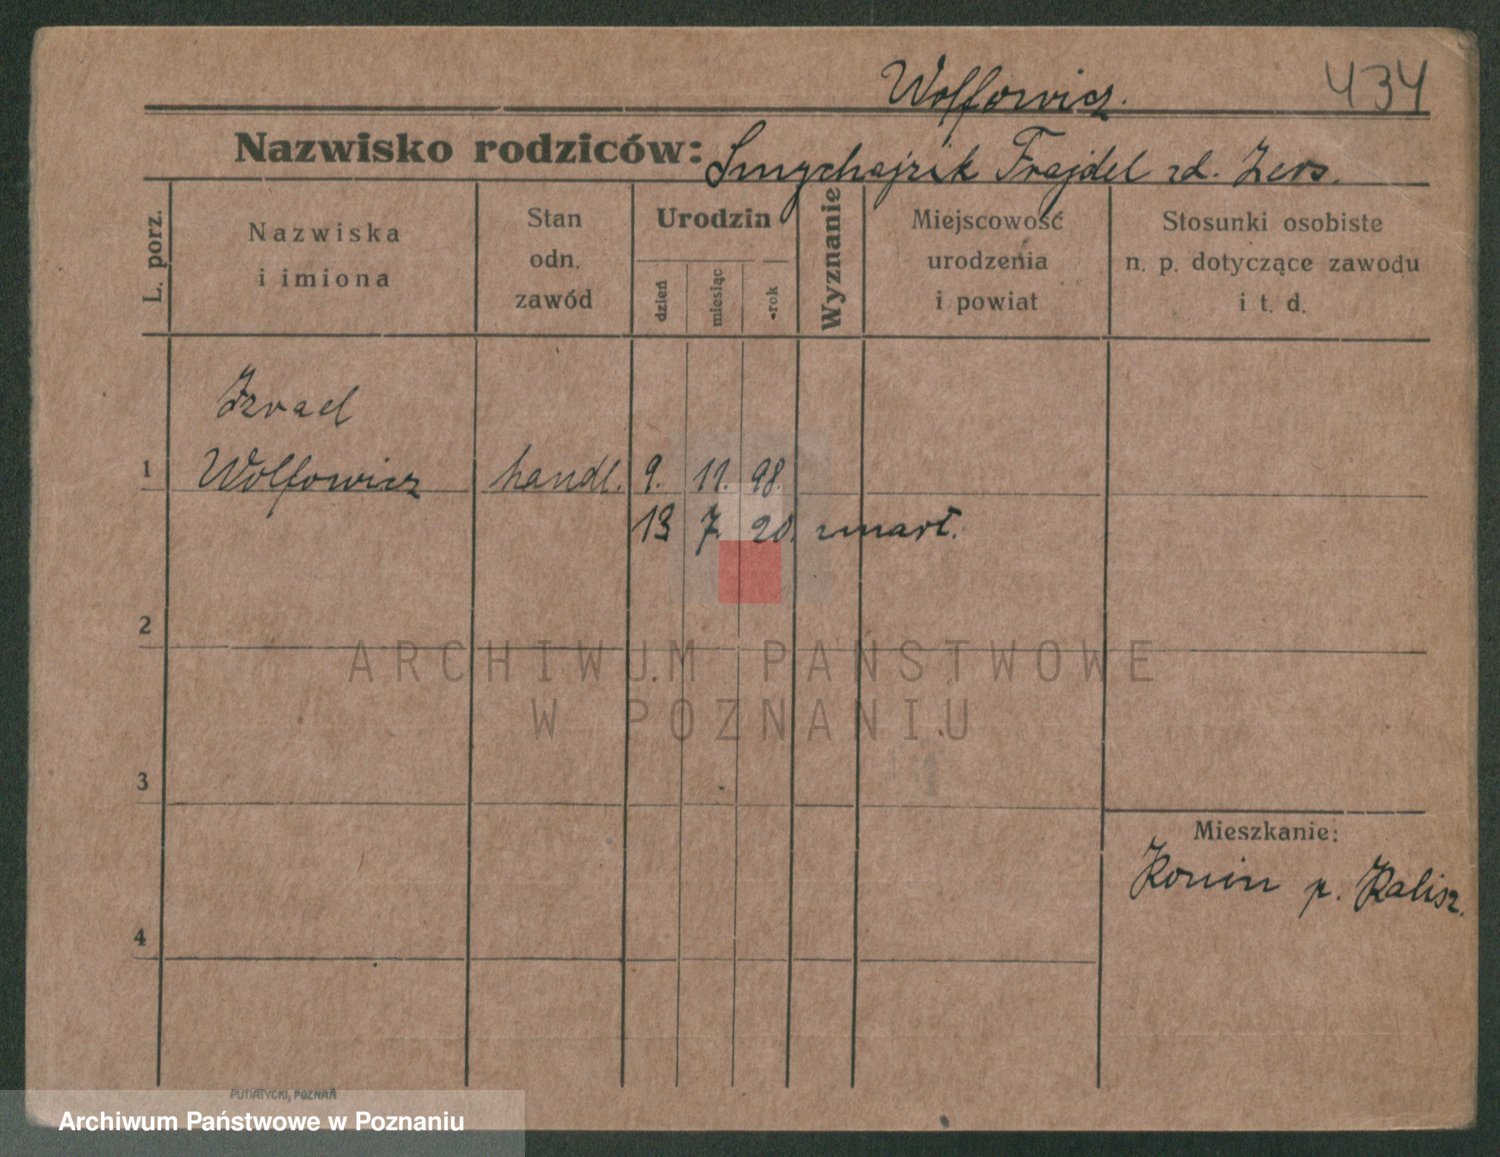 Wolfowicz.
434
Nazwisko rodziców: Smychajzik Frajdel zd. Zers.
L. porz.
Nazwiska
i imiona
Stan
odn.
zawód
Urodzin
dzień
miesiąc
rok
Wyznanie
Miejscowość
urodzenia
i powiat
Stosunki osobiste
n. p. dotyczące zawodu
i t. d.
Izrael
1 Wolfowicz handl. 9. 11. 98.
13 7. 20. zmarł.
2
ARCHIWUM PAŃSTWOWE
W POZNANIU
3
Mieszkanie:
Konin p. Kalisz.
4
PUTIATYCKI, POZNAŃ
Archiwum Państwowe w Poznaniu